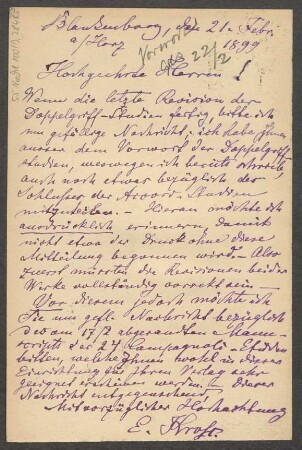 Blankenburg, den 21. Febr.
a/Harz 1899
Vorwort
22/2
Hochgeehrte Herren!
Wenn die letzte Revision der
Doppelgriff-Studien fertig, bitte ich
um gefällige Nachricht; ich habe Ihnen
ausser dem Vorwort der Doppelgriff
studien, weswegen ich bereits schrieb
auch noch etwas bezüglich der
Schlüsse der Accord-Studien
mitzuteilen. – Hieran möchte ich
ausdrücklich erinnern, damit
nicht etwa der Druck ohne diese
Mitteilung begonnen wird. – Also
zuerst müssten die Revisionen beider
Werke vollständig correct sein –
Vor diesem jedoch möchte ich
Sie um gefl. Nachricht bezüglich
des am 17/2 abgesandten Manu-
scripts der 24 Campagnoli-Etüden
bitten, welche Ihnen wohl in dieser
Einrichtung für Ihren Verlag sehr
geeignet erscheinen werden. – Dieser
Nachricht entgegensehend
Mit vorzüglicher Hochachtung
E. Kross.